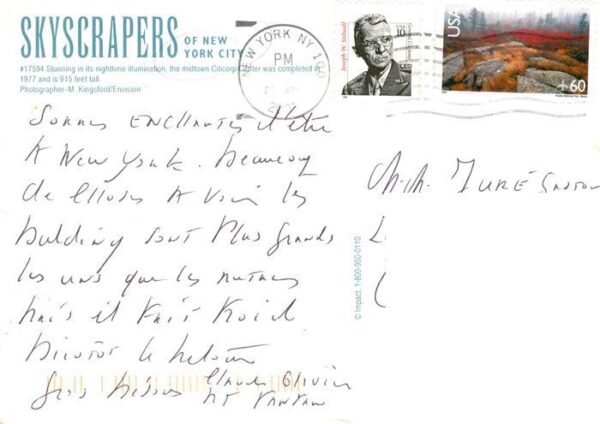 SKYSCRAPERS OF NEW YORK CITY
#17594 Stunning in its nighttime illumination, the midtown Citicorp Center was completed in
1977 and is 915 feet tall.
Photographer-M. Kingsford/Envision
NEW YORK NY 100
PM
Joseph W. Stilwell
USA
10
USA
+60
Sommes enchantés d'être
A New York. Beaucoup
de choses A voir les
building sont plus grands
les uns que les autres
mais il fait froid
Bientôt le retour
Gros bisous Claude Olivier
et
M.M. JURÉ Gaston
© Impact. 1-800-950-0110